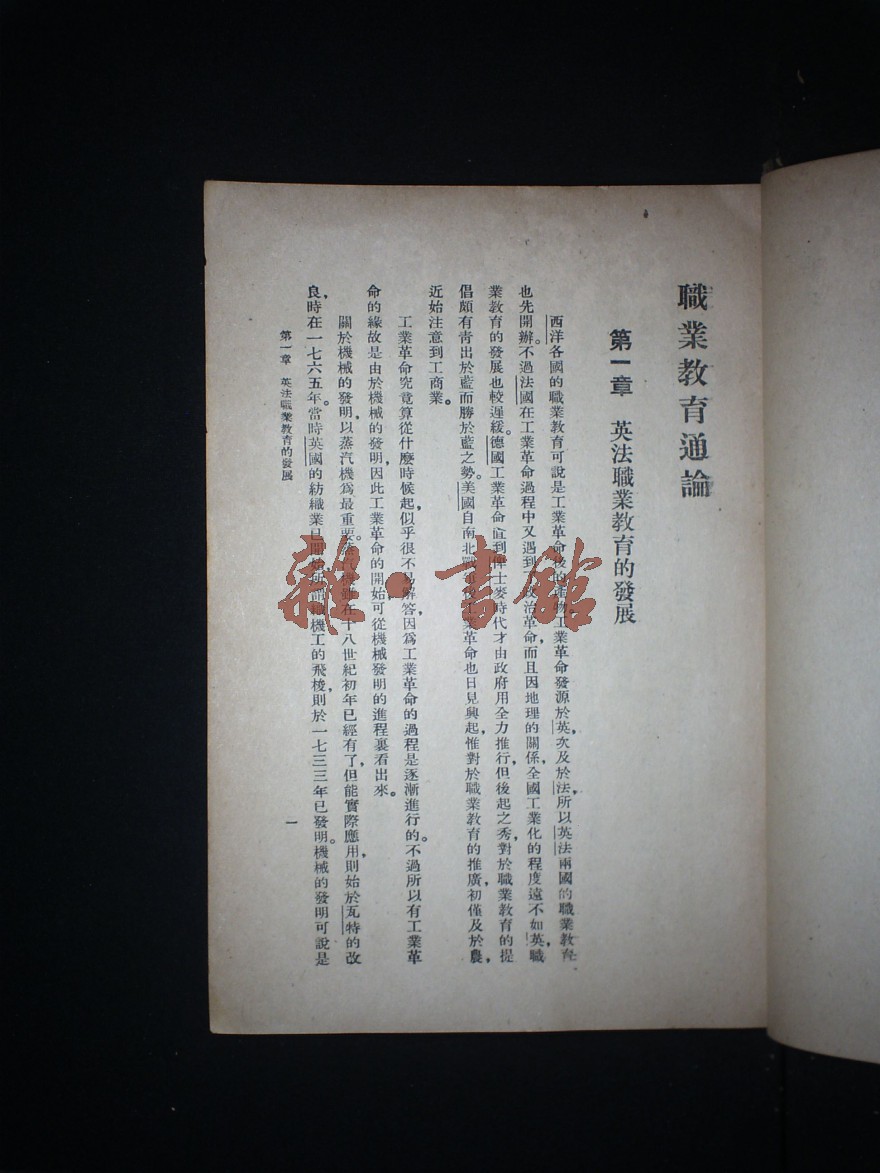 職業教育通論
第一章　英法職業教育的發展
西洋各國的職業教育可說是工業革命後的產物工業革命發源於英，次及於法，所以英法兩國的職業教育
也先開辦。不過法國在工業革命過程中又遇到政治革命，而且因地理的關係，全國工業化的程度遠不如英，職
業教育的發展也較遲緩。德國工業革命直到俾士麥時代才由政府用全力推行，但後起之秀，對於職業教育的提
倡頗有青出於藍而勝於藍之勢。美國自南北戰爭後工業革命也日見興起，惟對於職業教育的推廣，初僅及於農，
近始注意到工商業。
工業革命究竟算從什麼時候起，似乎很不易解答，因爲工業革命的過程是逐漸進行的。不過所以有工業革
命的緣故是由於機械的發明，因此工業革命的開始可從機械發明的進程裏看出來。
關於機械的發明，以蒸汽機爲最重要。蒸汽機雖在十八世紀初年已經有了，但能實際應用，則始於瓦特的改
良，時在一七六五年。當時英國的紡織業已開始，機工的飛梭，則於一七三三年已發明。機械的發明可說是
第一章　英法職業教育的發展
一
雜·書館